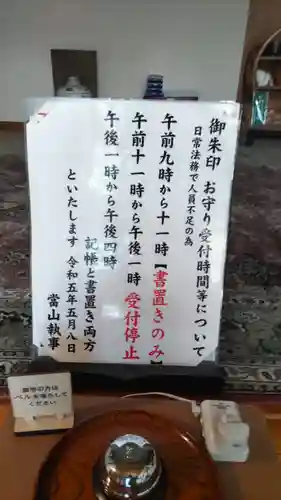 御朱印 お守り受付時間等について
日常法務で人員不足の為
午前九時から十一時【書置きのみ】
午前十一時から午後一時 受付停止
午後一時から午後四時
記帳と書置き両方
といたします 令和五年五月八日
當山執事
御用の方は
ベルを鳴らして
ください